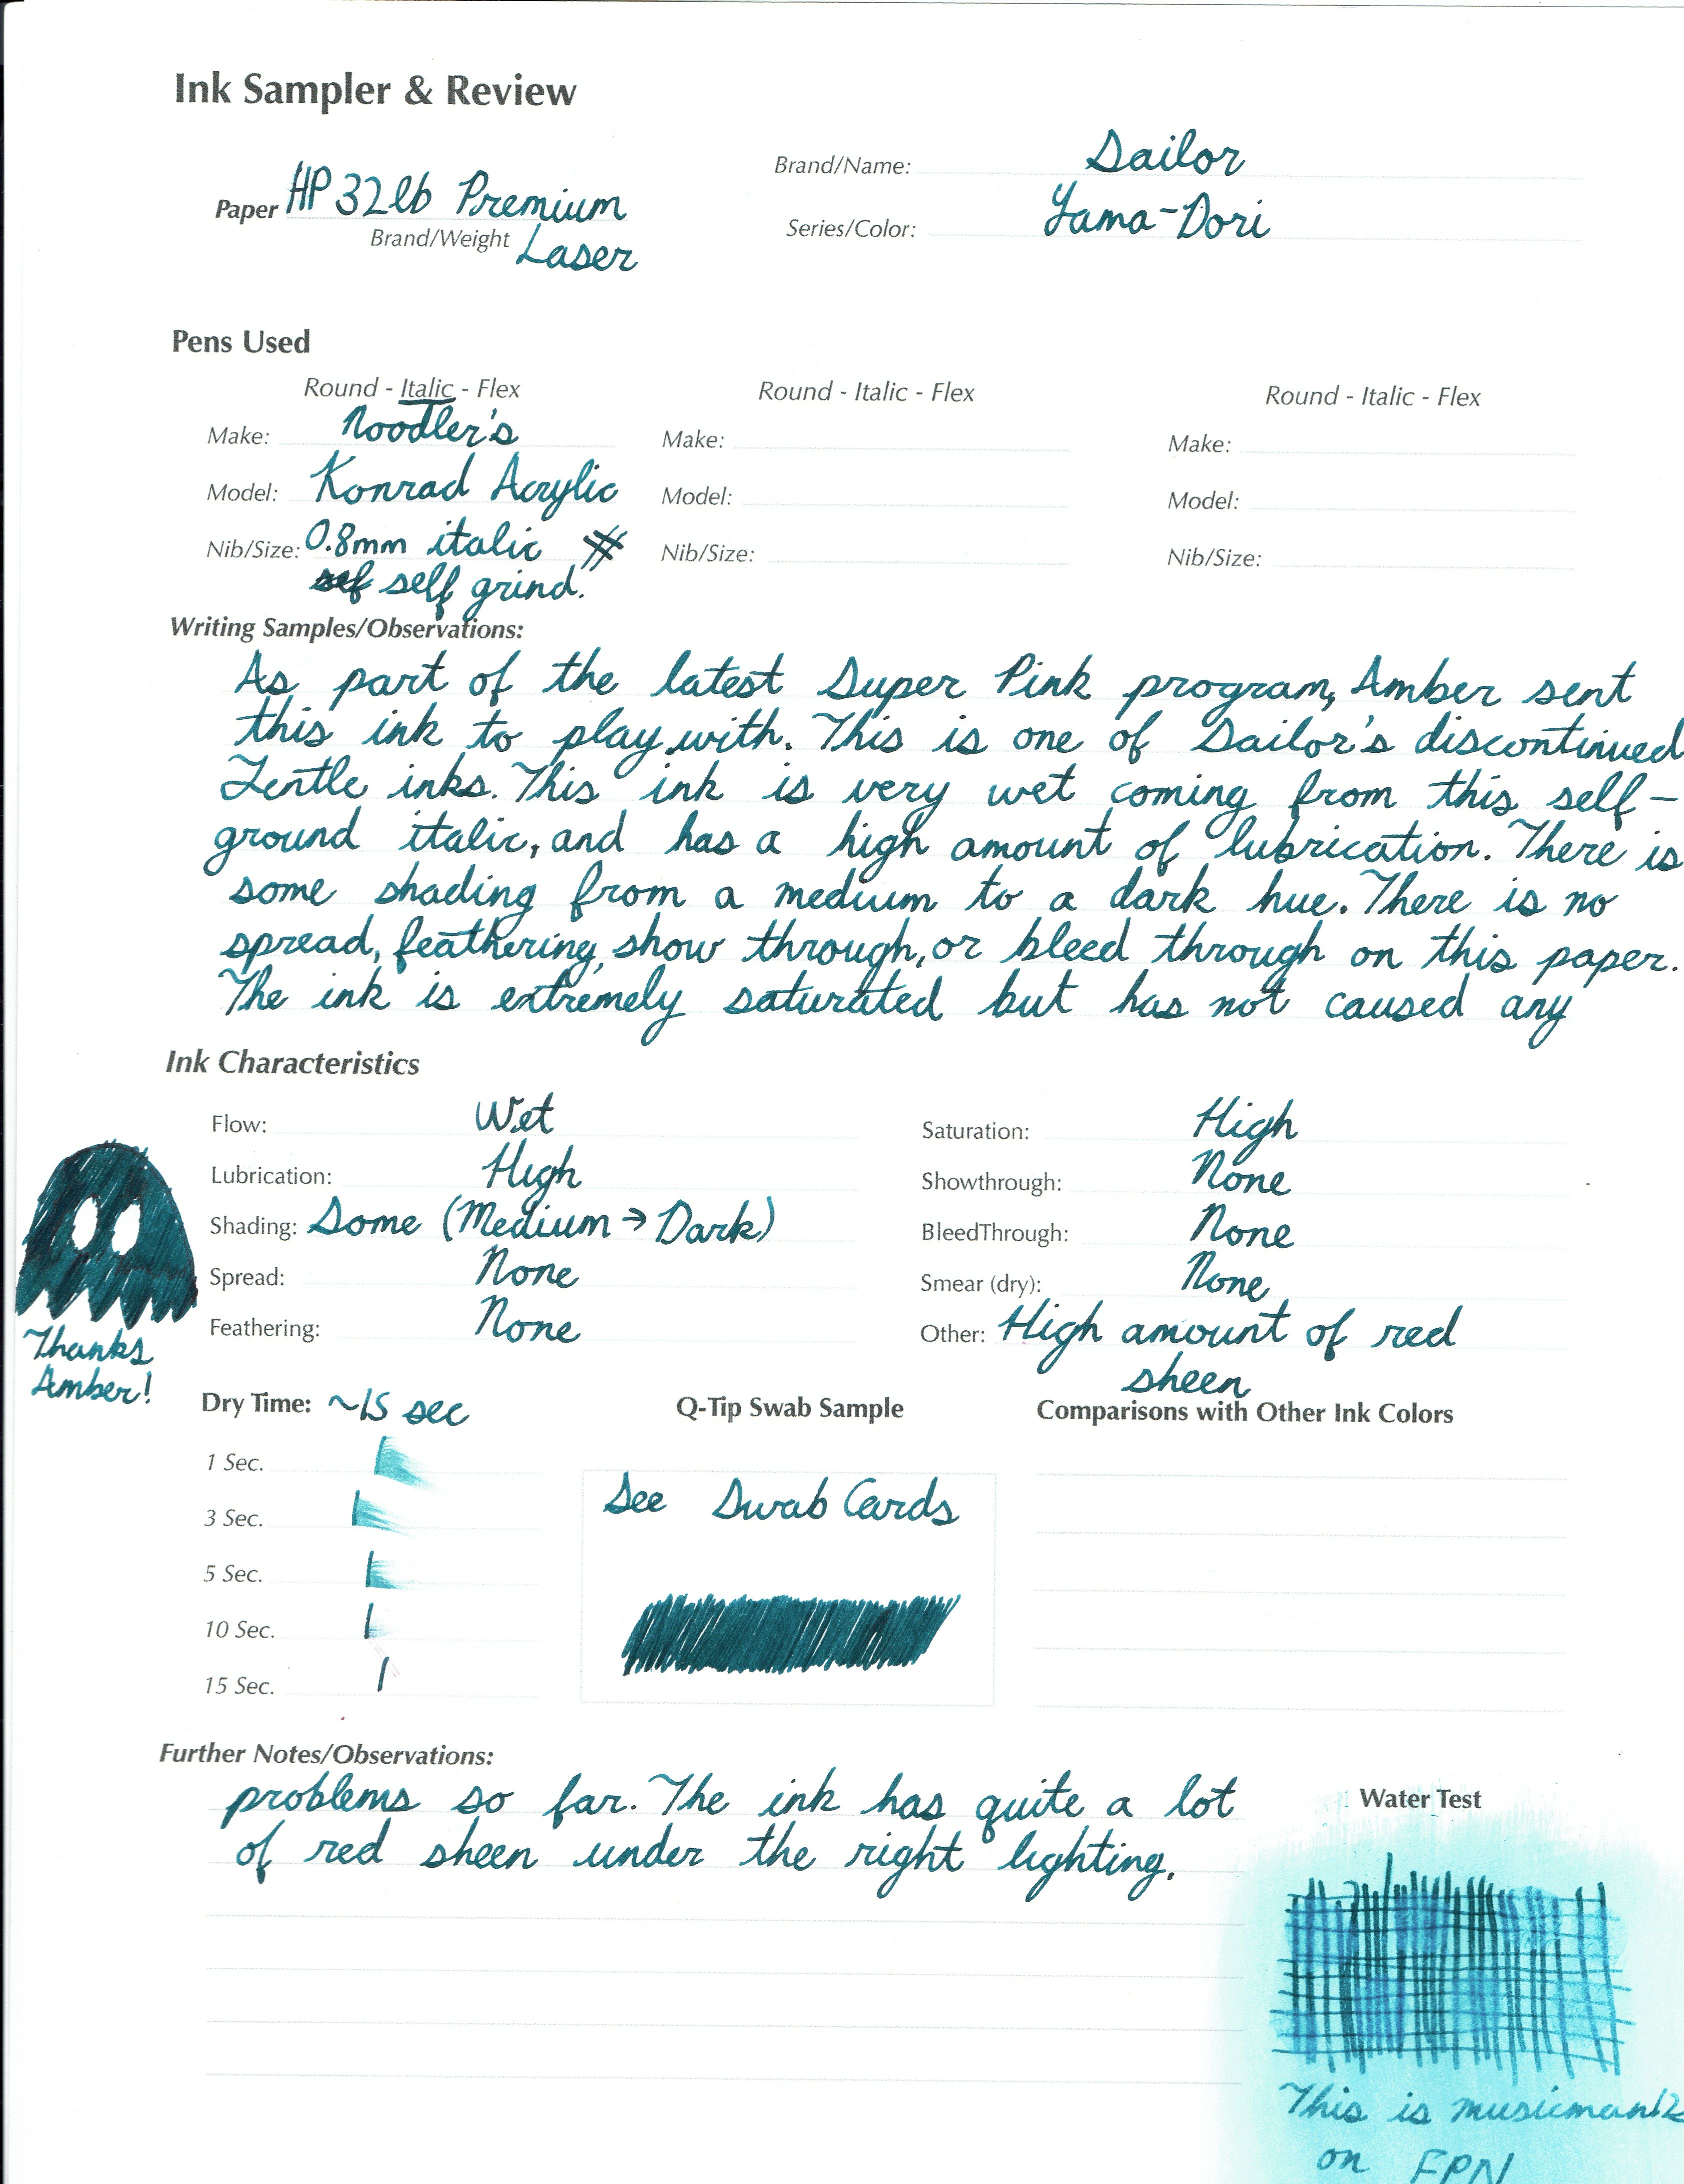 Ink Sampler & Review
Paper HP 32lb Premium
Brand/Weight Laser
Brand/Name: Sailor
Series/Color: Yama-Dori
Pens Used
Round - Italic - Flex
Make: Noodler's
Model: Konrad Acrylic
Nib/Size: 0.8mm italic
self grind.
Round - Italic - Flex
Make:
Model:
Nib/Size:
Round - Italic - Flex
Make:
Model:
Nib/Size:
Writing Samples/Observations:
As part of the latest Super Pink program, Amber sent
this ink to play with. This is one of Sailor's discontinued
Jentle inks. This ink is very wet coming from this self-
ground italic, and has a high amount of lubrication. There is
some shading from a medium to a dark hue. There is no
spread, feathering, show through, or bleed through on this paper.
The ink is extremely saturated but has not caused any
Ink Characteristics
Flow: Wet
Lubrication: High
Shading: Some (Medium → Dark)
Spread: None
Feathering: None
Saturation: High
Showthrough: None
BleedThrough: None
Smear (dry): None
Other: High amount of red
sheen
Thanks
Amber!
Dry Time: ~15 sec
1 Sec.
3 Sec.
5 Sec.
10 Sec.
15 Sec.
Q-Tip Swab Sample
See Swab Cards
Comparisons with Other Ink Colors
Further Notes/Observations:
problems so far. The ink has quite a lot
of red sheen under the right lighting.
Water Test
This is
on FPN